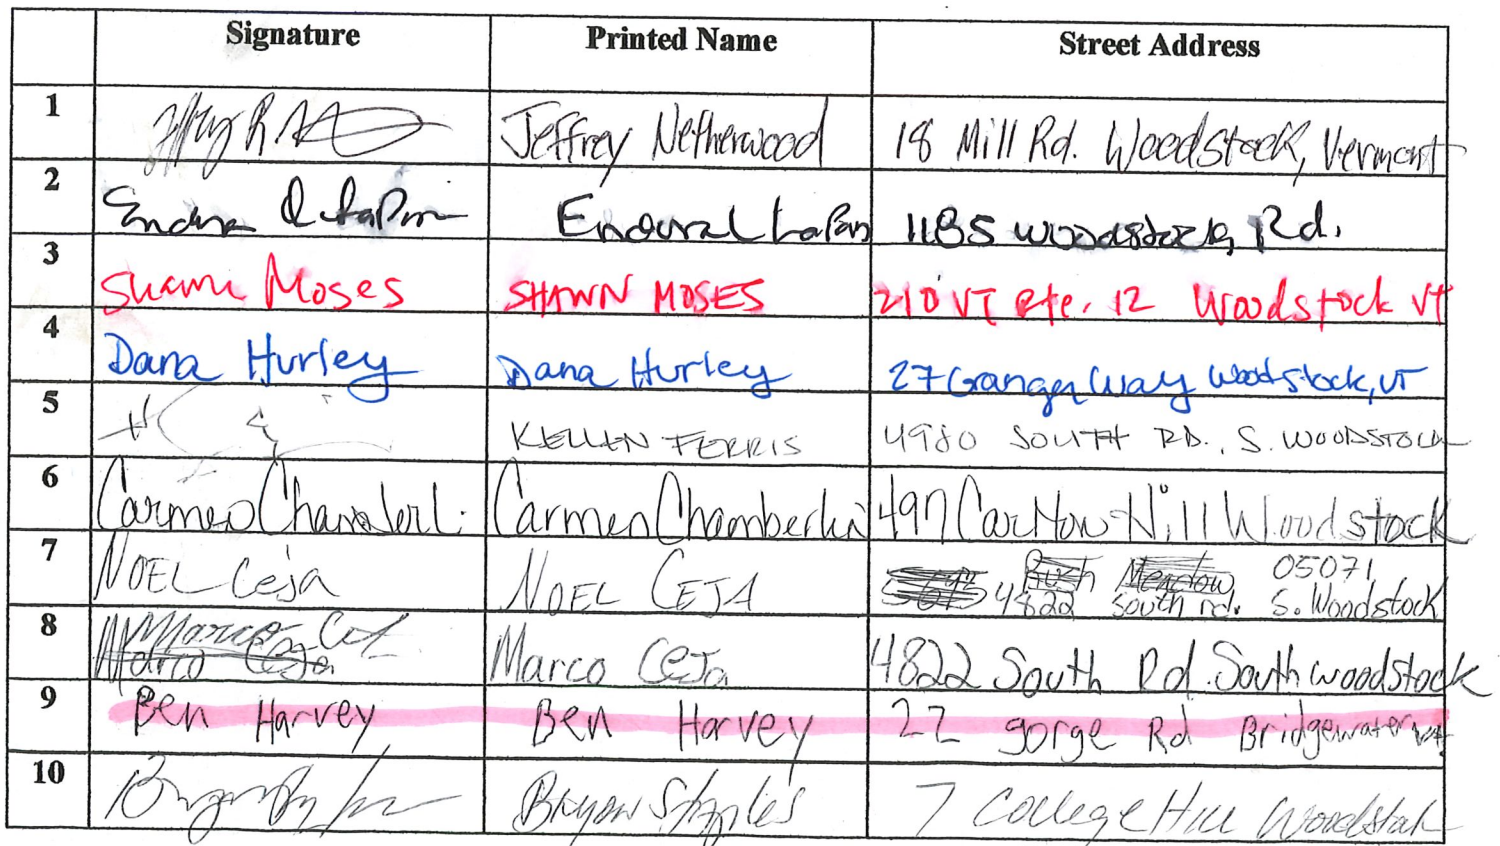 Signature Printed Name Street Address
1 Jeffrey Netherwood 18 Mill Rd. Woodstock, Vermont
2 1185 Woodstock Rd.
3 Shawn Moses SHAWN MOSES 210 VT Rte. 12 Woodstock VT
4 Dana Hurley Dana Hurley 27 Granger Way Woodstock, VT
5 KELLAN FERRIS 4980 SOUTH RD. S. WOODSTOCK
6 Carmen Carmen Chamberlin 497 Hill Woodstock
7 NOEL Ceja NOEL CEJA Meadow 05071
4822 South rd. S. Woodstock
8 Marco
Marco Ceja Marco Ceja 4822 South Rd. South woodstock
9 Ben Harvey Ben Harvey 22 gorge Rd Bridgewater vt
10 Bryan Staples 7 College Hill Woodstock